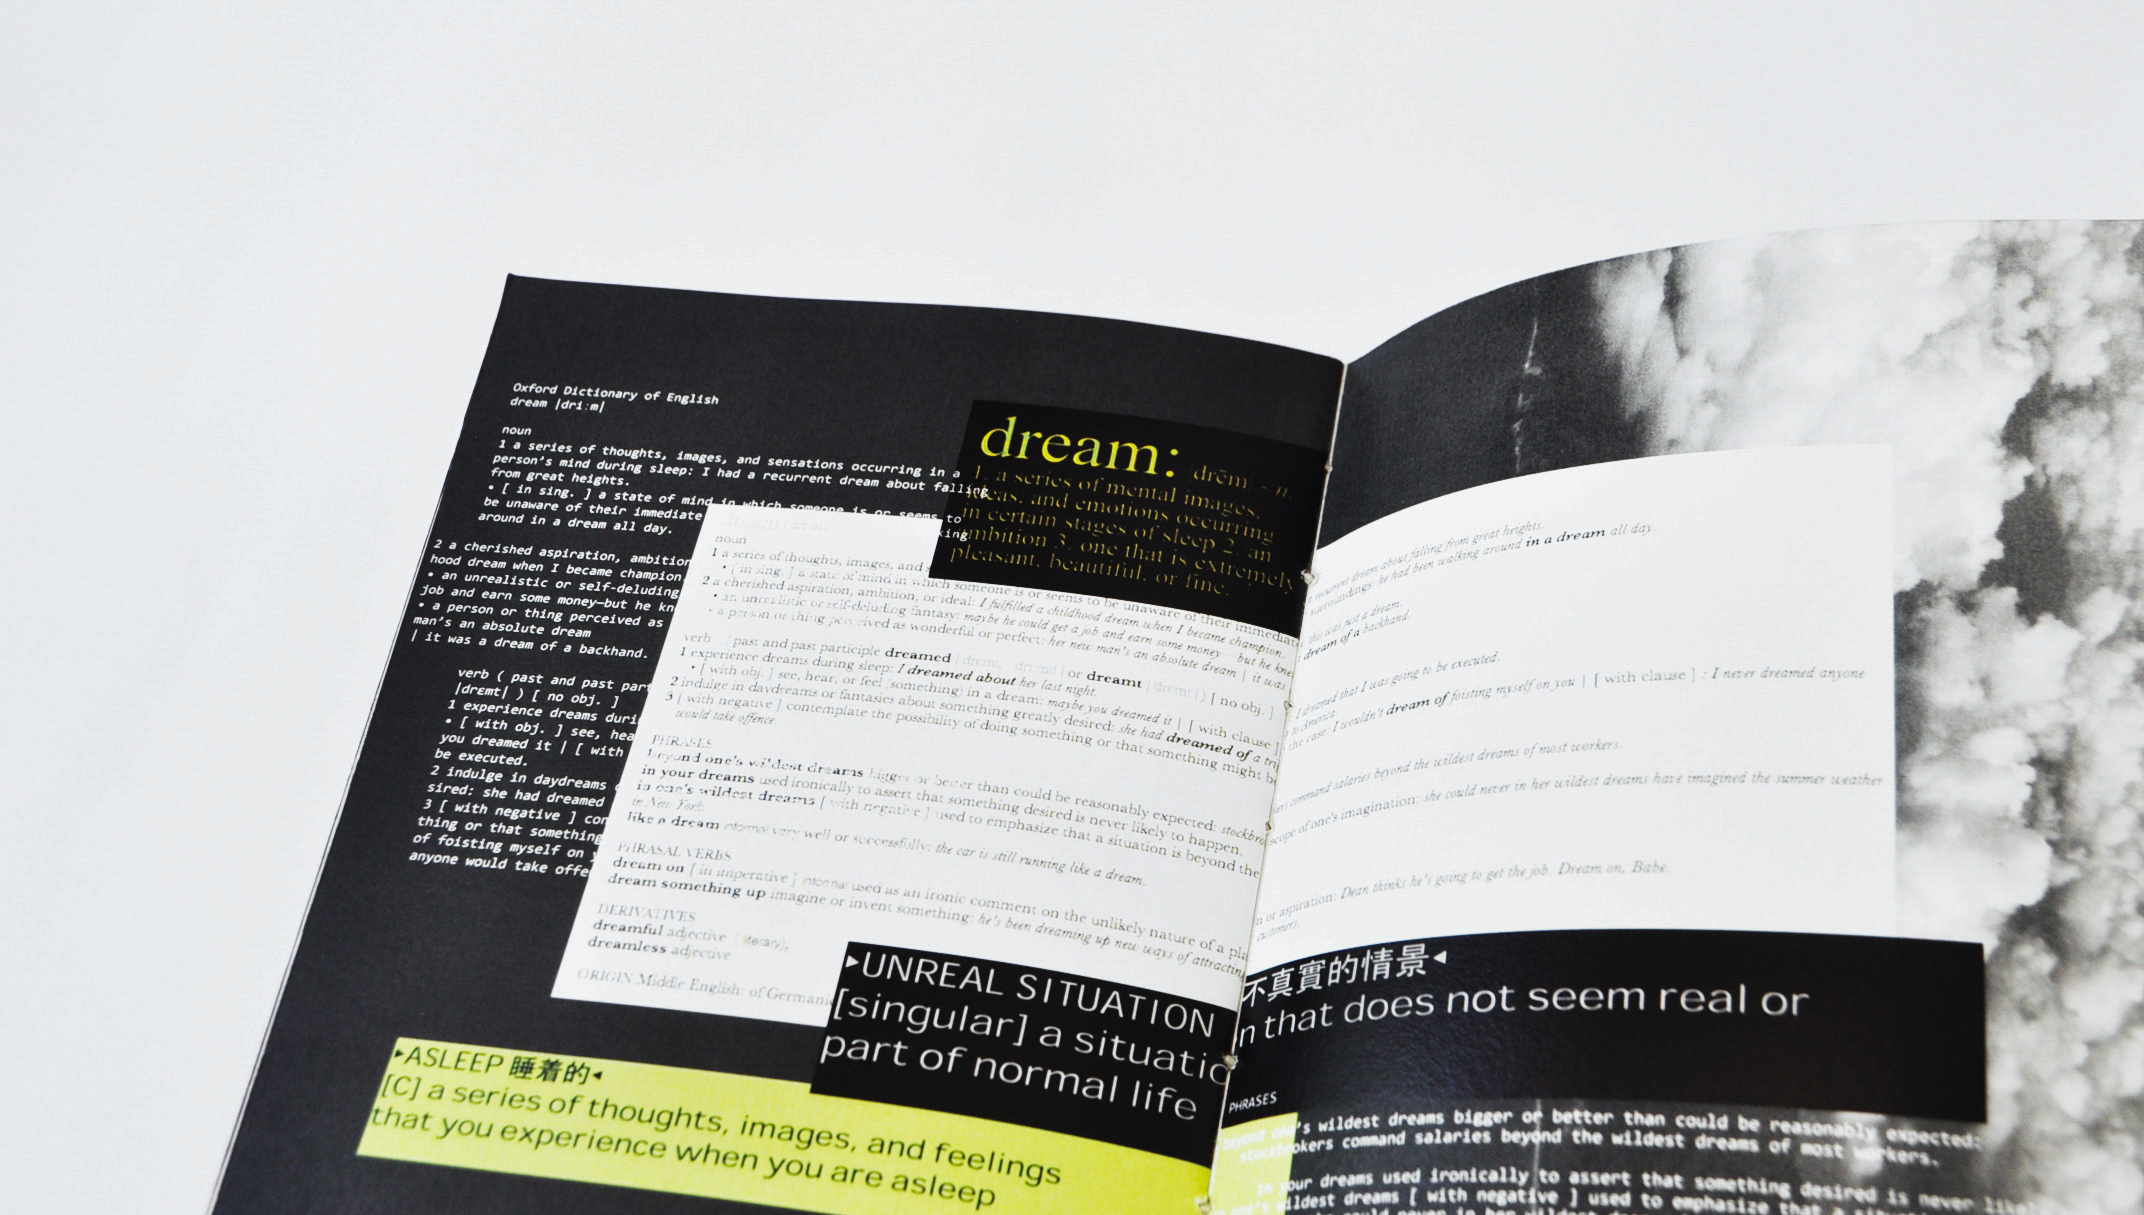 Oxford Dictionary of English
dream |driːm|
noun
1 a series of thoughts, images, and sensations occurring in a
person's mind during sleep: I had a recurrent dream about falling
from great heights.
• [ in sing. ] a state of mind in which someone is or seems to
be unaware of their immediate
around in a dream all day.
king
2 a cherished aspiration, ambition
hood dream when I became champion.
• an unrealistic or self-deluding
job and earn some money—but he kn
• a person or thing perceived as
man's an absolute dream
| it was a dream of a backhand.
verb ( past and past part
|drɛmt| ) [ no obj. ]
1 experience dreams duri
• [ with obj. ] see, hea
you dreamed it | [ with
be executed.
2 indulge in daydreams
sired: she had dreamed
3 [ with negative ] con
thing or that something
of foisting myself on y
anyone would take offe
dream: |drēm| - n.
1. a series of mental images,
ideas, and emotions occurring
in certain stages of sleep 2. an
ambition 3. one that is extremely
pleasant, beautiful, or fine.
noun
1 a series of thoughts, images, and s
• [ in sing. ] a state of mind in which someone is or seems to be unaware of their immediat
2 a cherished aspiration, ambition, or ideal: I fulfilled a childhood dream when I became champion.
• an unrealistic or self-deluding fantasy: maybe he could get a job and earn some money—but he kne
• a person or thing perceived as wonderful or perfect: her new man's an absolute dream | it was
verb ( past and past participle dreamed | or dreamt |drɛmt| ) [ no obj. ]
1 experience dreams during sleep: I dreamed about her last night.
• [ with obj. ] see, hear, or feel (something) in a dream: maybe you dreamed it | [ with clause ]
2 indulge in daydreams or fantasies about something greatly desired: she had dreamed of a tri
3 [ with negative ] contemplate the possibility of doing something or that something might b
would take offence.
PHRASES
beyond one's wildest dreams bigger or better than could be reasonably expected: stockbro
in your dreams used ironically to assert that something desired is never likely to happen.
in one's wildest dreams [ with negative ] used to emphasize that a situation is beyond the
in New York.
like a dream informal very well or successfully: the car is still running like a dream.
PHRASAL VERBS
dream on [ in imperative ] informal used as an ironic comment on the unlikely nature of a pla
dream something up imagine or invent something: he's been dreaming up new ways of attractin
DERIVATIVES
dreamful adjective (literary),
dreamless adjective
ORIGIN Middle English: of Germani
▸UNREAL SITUATION
[singular] a situatio
part of normal life
▸ASLEEP 睡着的◂
[C] a series of thoughts, images, and feelings
that you experience when you are asleep
recurrent dream about falling from great heights.
surroundings: he had been walking around in a dream all day.
this was just a dream.
dream of a backhand.
: I dreamed that I was going to be executed.
to America.
the case: I wouldn't dream of foisting myself on you | [ with clause ] : I never dreamed anyone
kers command salaries beyond the wildest dreams of most workers.
scope of one's imagination: she could never in her wildest dreams have imagined the summer weather
n or aspiration: Dean thinks he's going to get the job. Dream on, Babe.
customers.
不真實的情景◂
n that does not seem real or
PHRASES
beyond one's wildest dreams bigger or better than could be reasonably expected:
stockbrokers command salaries beyond the wildest dreams of most workers.
in your dreams used ironically to assert that something desired is never like
one's wildest dreams [ with negative ] used to emphasize that a situati
could never in her wildest